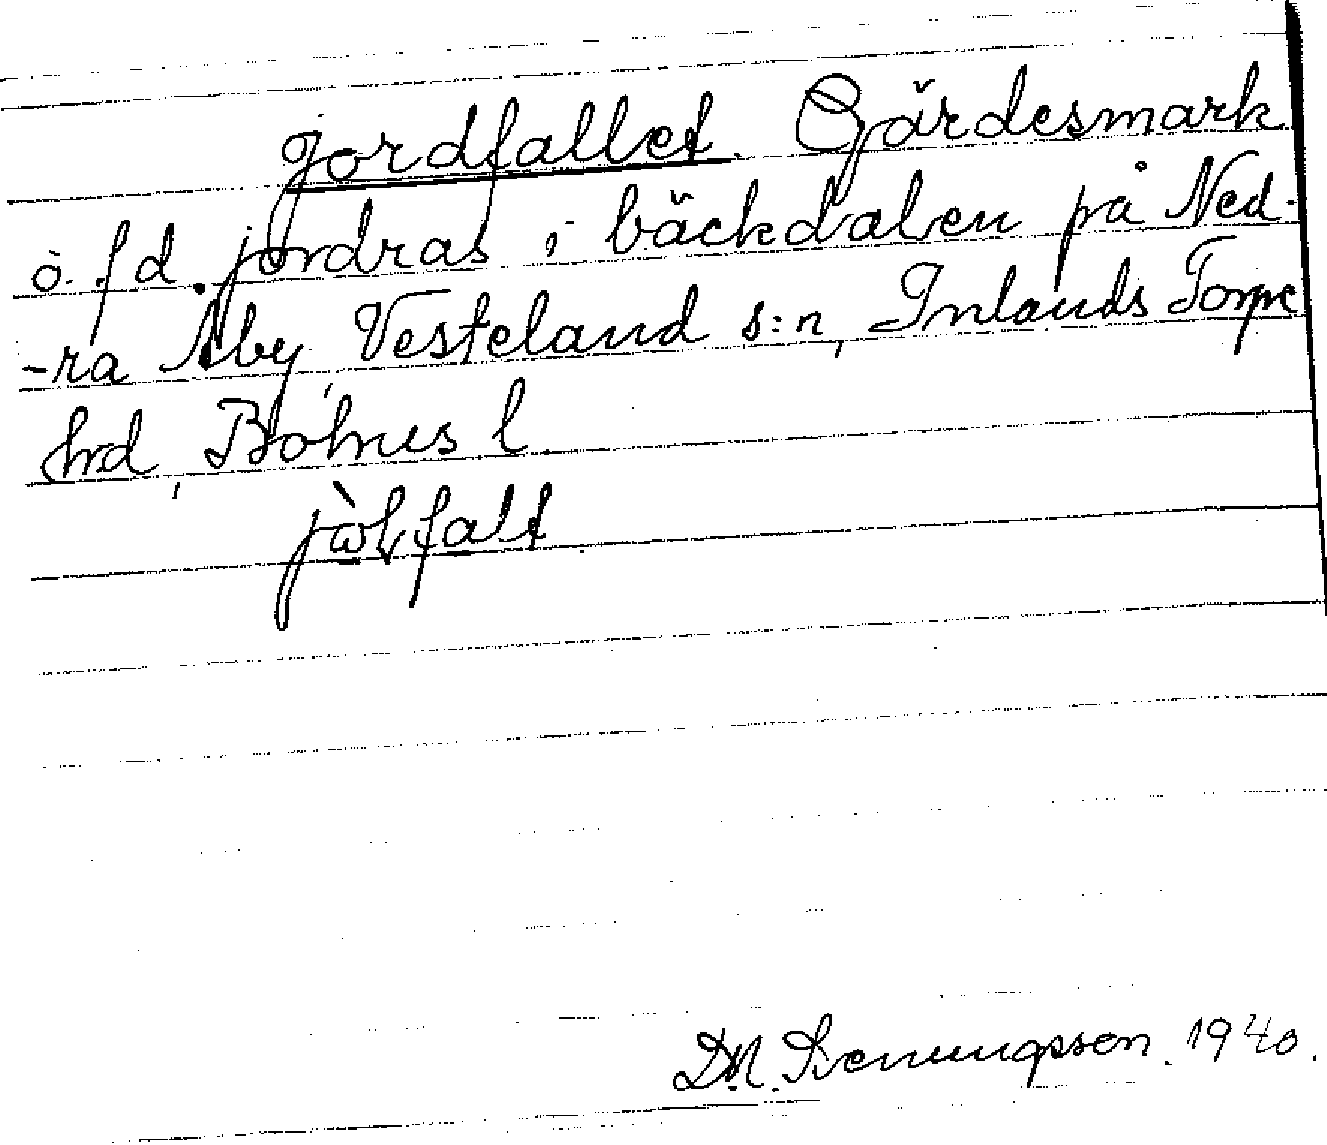 jordfallet. Gärdesmark
o. f d. jordras i bäckdalen på Ned-
-ra Åby, Vesteland s:n, Inlands Torpe
hrd, Bohus l
D.N. Svenungsson. 1940.